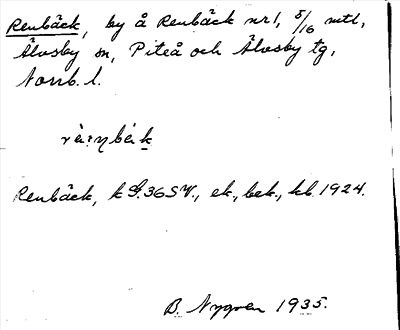 Renbäck, by å Renbäck nr 1, 5/16 mtl,
Älvsby sn, Piteå och Älvsby tg,
Norrb. l.
Renbäck, k S. 36 SV., ek., bek., kb. 1924.
B. Nygren 1935.